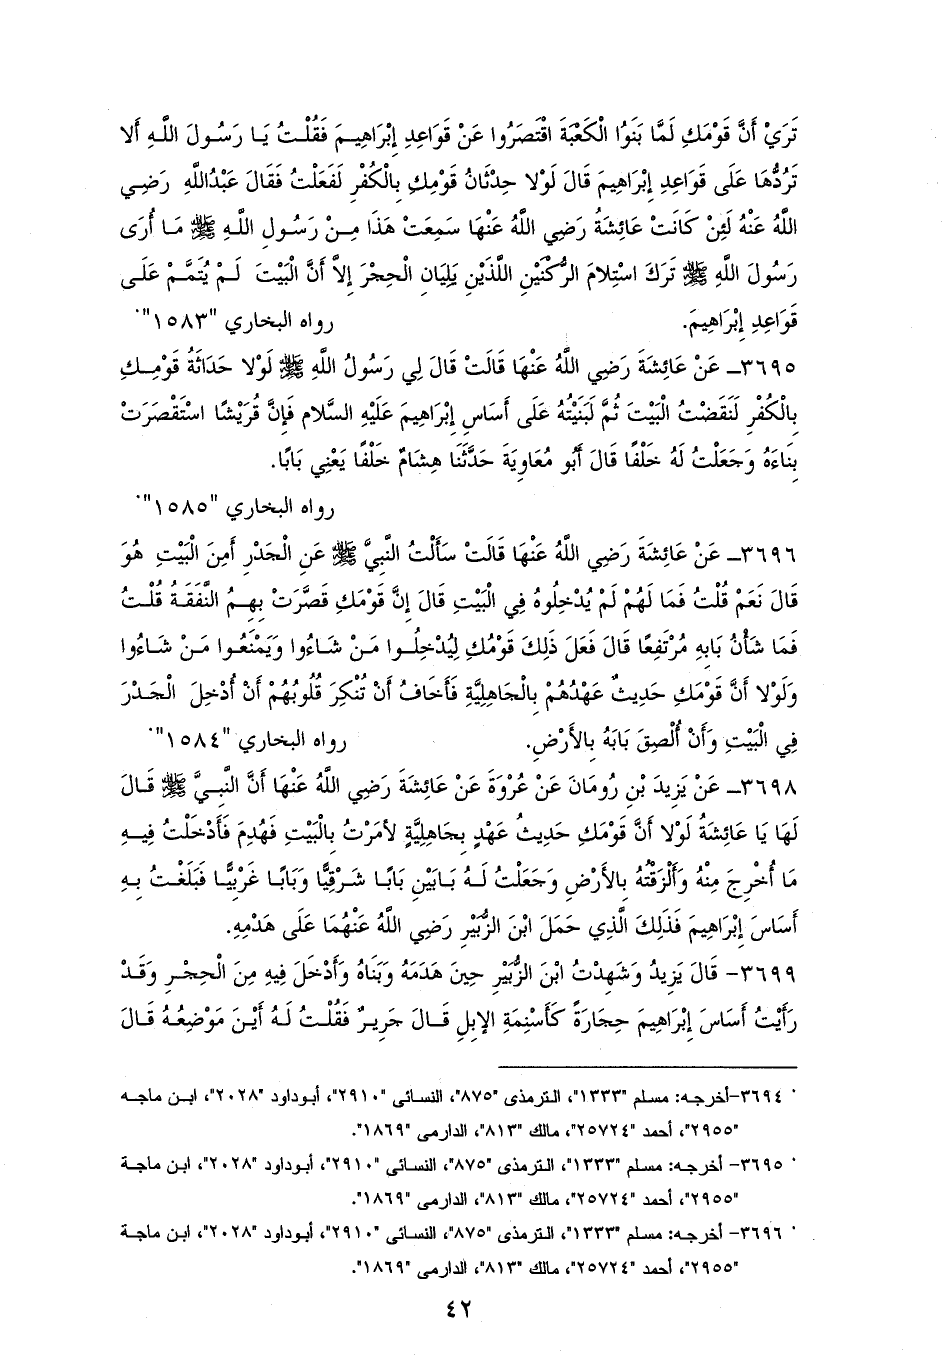 تَرَيْ أَنَّ قَوْمَكِ لَمَّا بَنَوُا الْكَعْبَةَ اقْتَصَرُوا عَنْ قَوَاعِدِ إِبْرَاهِيمَ فَقُلْتُ يَا رَسُولَ اللَّهِ أَلا
تَرُدُّهَا عَلَى قَوَاعِدِ إِبْرَاهِيمَ قَالَ لَوْلا حِدْثَانُ قَوْمِكِ بِالْكُفْرِ لَفَعَلْتُ فَقَالَ عَبْدُاللَّهِ رَضِي
اللَّهُ عَنْهُ لَئِنْ كَانَتْ عَائِشَةُ رَضِي اللَّهُ عَنْهَا سَمِعَتْ هَذَا مِنْ رَسُولِ اللَّهِ ﷺ مَا أُرَى
رَسُولَ اللَّهِ ﷺ تَرَكَ اسْتِلامَ الرُّكْنَيْنِ اللَّذَيْنِ يَلِيَانِ الْحِجْرَ إِلاَّ أَنَّ الْبَيْتَ لَمْ يُتَمَّمْ عَلَى
قَوَاعِدِ إِبْرَاهِيمَ. رواه البخاري "١٥٨٣"*
٣٦٩٥ـ عَنْ عَائِشَةَ رَضِي اللَّهُ عَنْهَا قَالَتْ قَالَ لِي رَسُولُ اللَّهِ ﷺ لَوْلا حَدَاثَةُ قَوْمِكِ
بِالْكُفْرِ لَنَقَضْتُ الْبَيْتَ ثُمَّ لَبَنَيْتُهُ عَلَى أَسَاسِ إِبْرَاهِيمَ عَلَيْهِ السَّلام فَإِنَّ قُرَيْشًا اسْتَقْصَرَتْ
بِنَاءَهُ وَجَعَلْتُ لَهُ خَلْفًا قَالَ أَبُو مُعَاوِيَةَ حَدَّثَنَا هِشَامٌ خَلْفًا يَعْنِي بَابًا.
رواه البخاري "١٥٨٥"*
٣٦٩٦ـ عَنْ عَائِشَةَ رَضِي اللَّهُ عَنْهَا قَالَتْ سَأَلْتُ النَّبِيَّ ﷺ عَنِ الْجَدْرِ أَمِنَ الْبَيْتِ هُوَ
قَالَ نَعَمْ قُلْتُ فَمَا لَهُمْ لَمْ يُدْخِلُوهُ فِي الْبَيْتِ قَالَ إِنَّ قَوْمَكِ قَصَّرَتْ بِهِمُ النَّفَقَةُ قُلْتُ
فَمَا شَأْنُ بَابِهِ مُرْتَفِعًا قَالَ فَعَلَ ذَلِكَ قَوْمُكِ لِيُدْخِلُوا مَنْ شَاءُوا وَيَمْنَعُوا مَنْ شَاءُوا
وَلَوْلا أَنَّ قَوْمَكِ حَدِيثٌ عَهْدُهُمْ بِالْجَاهِلِيَّةِ فَأَخَافُ أَنْ تُنْكِرَ قُلُوبُهُمْ أَنْ أُدْخِلَ الْجَدْرَ
فِي الْبَيْتِ وَأَنْ أُلْصِقَ بَابَهُ بِالأَرْضِ. رواه البخاري "١٥٨٤"*
٣٦٩٨ـ عَنْ يَزِيدَ بْنِ رُومَانَ عَنْ عُرْوَةَ عَنْ عَائِشَةَ رَضِي اللَّهُ عَنْهَا أَنَّ النَّبِيَّ ﷺ قَالَ
لَهَا يَا عَائِشَةُ لَوْلا أَنَّ قَوْمَكِ حَدِيثُ عَهْدٍ بِجَاهِلِيَّةٍ لأَمَرْتُ بِالْبَيْتِ فَهُدِمَ فَأَدْخَلْتُ فِيهِ
مَا أُخْرِجَ مِنْهُ وَأَلْزَقْتُهُ بِالأَرْضِ وَجَعَلْتُ لَهُ بَابَيْنِ بَابًا شَرْقِيًّا وَبَابًا غَرْبِيًّا فَبَلَغْتُ بِهِ
أَسَاسَ إِبْرَاهِيمَ فَذَلِكَ الَّذِي حَمَلَ ابْنَ الزُّبَيْرِ رَضِي اللَّهُ عَنْهُمَا عَلَى هَدْمِهِ.
٣٦٩٩- قَالَ يَزِيدُ وَشَهِدْتُ ابْنَ الزُّبَيْرِ حِينَ هَدَمَهُ وَبَنَاهُ وَأَدْخَلَ فِيهِ مِنَ الْحِجْرِ وَقَدْ
رَأَيْتُ أَسَاسَ إِبْرَاهِيمَ حِجَارَةً كَأَسْنِمَةِ الإِبِلِ قَالَ جَرِيرٌ فَقُلْتُ لَهُ أَيْنَ مَوْضِعُهُ قَالَ
* ٣٦٩٤-أخرجه: مسلم "١٣٣٣"، الترمذى "٨٧٥"، النسائى "٢٩١٠"، أبوداود "٢٠٢٨"، ابن ماجه
"٢٩٥٥"، أحمد "٢٥٧٢٤"، مالك "٨١٣"، الدارمى "١٨٦٩".
* ٣٦٩٥- أخرجه: مسلم "١٣٣٣"، الترمذى "٨٧٥"، النسائى "٢٩١٠"، أبوداود "٢٠٢٨"، ابن ماجة
"٢٩٥٥"، أحمد "٢٥٧٢٤"، مالك "٨١٣"، الدارمى "١٨٦٩".
* ٣٦٩٦- أخرجه: مسلم "١٣٣٣"، الترمذى "٨٧٥"، النسائى "٢٩١٠"، أبوداود "٢٠٢٨"، ابن ماجة
"٢٩٥٥"، أحمد "٢٥٧٢٤"، مالك "٨١٣"، الدارمى "١٨٦٩".
٤٢